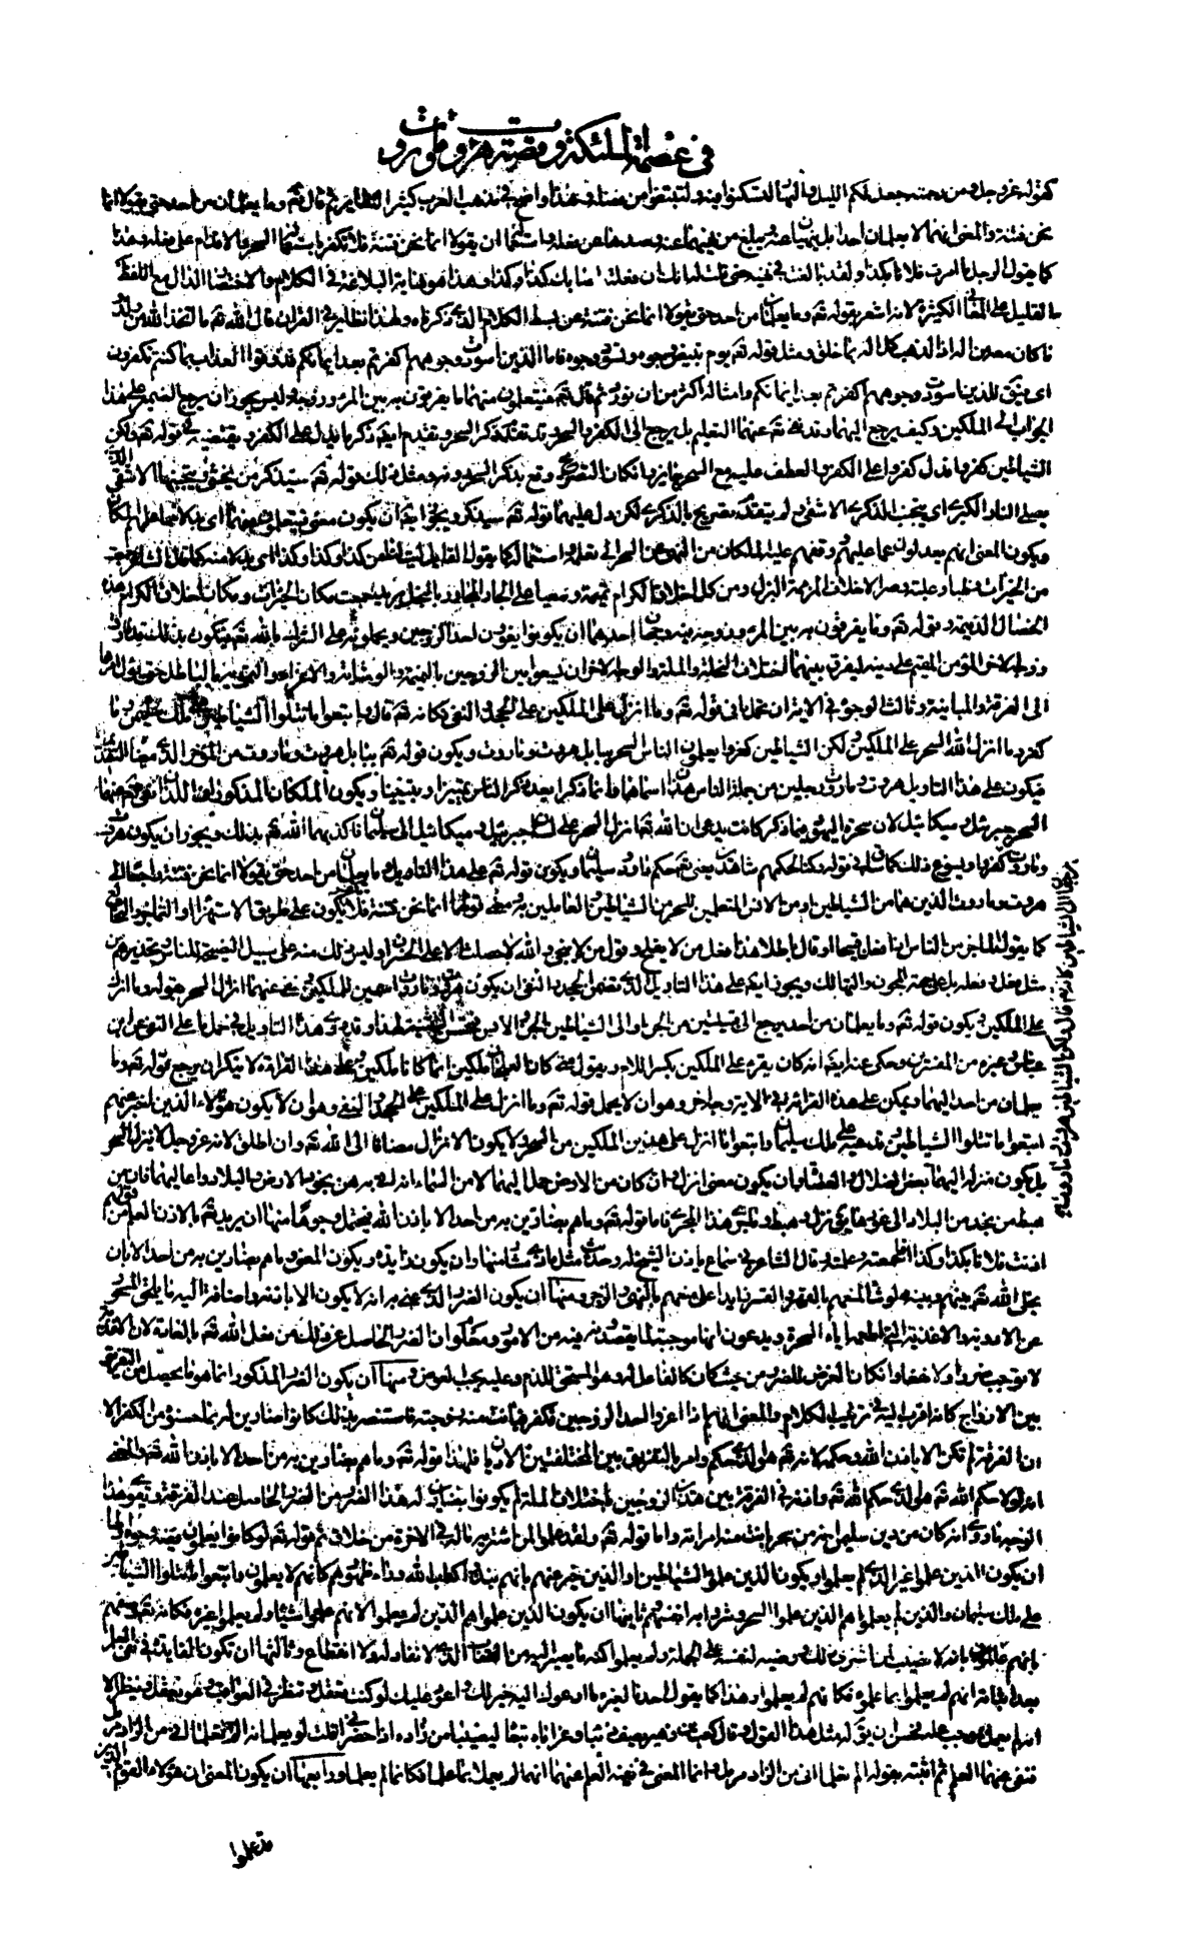 في عصمة الملئكة و قصة هروت و مروت
كقوله عز و جل و من رحمته جعل لكم الليل و النهار لتسكنوا فيه و لتبتغوا من فضله و هذا واضح في مذهب العرب كثير النظاير ثم قال تعم و ما يعلمان من احد حتى يقولا انما
نحن فتنة و المعنى انهما لا يعلمان احدا بل ينهيان عنه و يبلغ من نهيهما عنه و صدهما عن فعله و استعماله ان يقولا انما نحن فتنة فلا تكفر باستعمال السحر و الاقدام على فعله و هذا
كما يقول الرجل ما امرت فلانا بكذا و لقد بالغت في نهيه حتى قلت له انك ان فعلته اصابك كذا و كذا و هذا هو نهاية البلاغة في الكلام و الاختصار الدال مع اللفظ
القليل على المعاني الكثيرة لانه اشعر بقوله تعم و ما يعلمان من احد حتى يقولا انما نحن فتنة عن بسط الكلام الذي ذكرناه و لهذا نظاير في القران قال الله تعم ما اتخذ الله من ولد
و ما كان معه من اله اذا لذهب كل اله بما خلق و مثل قوله تعم يوم تبيض وجوه و تسود وجوه فاما الذين اسودت وجوههم اكفرتم بعد ايمانكم فذوقوا العذاب بما كنتم تكفرون
اي فيقال للذين اسودت وجوههم اكفرتم بعد ايمانكم و امثاله اكثر من ان نورد ثم قال تعم فيتعلمون منهما ما يفرقون به بين المرء و زوجه و ليس يجوز ان يرجع الضمير على هذا
الجواب الى الملكين و كيف يرجع اليهما و قد نفى تعم عنهما التعليم بل يرجع الى الكفر و السحر و قد تقدم ذكر السحر و تقدم ايضا ذكر ما يدل على الكفر و يقتضيه في قوله تعم و لكن
الشياطين كفروا فدل كفروا على الكفر و العطف عليه مع السحر جايز و ان كان التصريح وقع بذكر السحر دونه و مثل ذلك قوله تعم سيذكر من يخشى و يتجنبها الاشقى الذي
يصلى النار الكبرى اي يتجنب الذكرى الاشقى و لم يتقدم تصريح بالذكرى لكن دل عليها قوله تعم سيذكر و يجوز ايضا ان يكون معنى فيتعلمون منهما اي بدلا مما علمهم الملكان
و يكون المعنى انهم يعدلون عما علمهم و وقفهم عليه الملكان من النهي عن السحر الى تعلمه و استعماله كما يقول القائل ليت لنا من كذا و كذا كذا اي بدلا منه كما قال الشاعر جمعت
من الخيرات وطبا و علبة و صرا لاخلاف المزممة البزل و من كل اخلاق الكرام نميمة و سعيا على الجار المجاور بالمحل يريد جمعت مكان الخيرات و مكان اخلاق الكرام هذه
الخصال الذميمة و قوله تعم و ما يفرقون به بين المرء و زوجه فيه وجهان احدهما ان يكونوا يغوون احد الزوجين و يحملونه على الشرك بالله تعم فيكون بذلك قد فارق
زوجه الاخر المؤمن المقيم على دينه ليفرق بينهما اختلاف النحلة و الملة و الوجه الاخر ان يسعوا بين الزوجين بالنميمة و الوشاية و الاغراء و التمويه بالباطل حتى يؤل امرهما
الى الفرقة و المباينة و ثالث الوجوه في الاية ان تحمل ما في قوله تعم و ما انزل على الملكين على الجحد و النفي فكانه تعم قال و اتبعوا ما تتلوا الشياطين على ملك سليمن و ما
كفر و ما انزل الله السحر على الملكين و لكن الشياطين كفروا يعلمون الناس السحر ببابل هروت و ماروت و يكون قوله تعم ببابل هروت و ماروت من المؤخر الذي معناه التقديم
فيكون على هذا التاويل هروت و ماروت رجلين من جملة الناس هذان اسماهما و انما ذكرا بعد ذكر الناس تمييزا و تبيينا و يكون الملكان المذكوران اللذان نفى تعم عنهما
السحر جبرئيل و ميكائيل لان سحرة اليهود فيما ذكر كانت تدعي ان الله تعم انزل السحر على لسان جبرئيل و ميكائيل الى سليمان فاكذبهما الله تعم بذلك و يجوز ان يكون هروت
و ماروت كفروا و يسوغ ذلك كما ساغ في قوله و كنا لحكمهم شاهدين يعني تعم حكم داود و سليمان و يكون قوله تعم على هذا التاويل و ما يعلمان من احد حتى يقولا انما نحن فتنة راجعا الى
هروت و ماروت الذين هما من الشياطين او من الانس المتعلمين للسحر من الشياطين و العاملين به و معنى قولهما انما نحن فتنة فلا تكفر يكون على طريق الاستهزاء و التماجن و التخالع
كما يقول الماجن من الناس اذا فعل قبيحا او قال باطلا هذا فعل من لا يفلح و قول من لا ينجب و الله لا حصلت الا على الخسران و ليس ذلك منه على سبيل النصيحة للناس و تحذيرهم من
مثل فعله بل على جهة المجون و التهالك و يجوز ايضا على هذا التاويل الذي تضمن الجحد و النفي ان يكون هروت و ماروت اسمين للملكين و نفى عنهما انزال السحر بقوله و ما انزل
على الملكين و يكون قوله تعم و ما يعلمان من احد يرجع الى قبيلتين من الجن او الى شياطين الجن و الانس فتحسن التثنية لهذا و قد روي هذا التاويل في حمل ما على النفي عن ابن
عباس و غيره من المفسرين و حكي عنه ايضا انه كان يقرء على الملكين بكسر اللام و يقول متى كان العلجان ملكين انما كانا ملكين و على هذه القراءة لا ينكر ان يرجع قوله تعم و ما
يعلمان من احد اليهما و يمكن على هذه القرائة في الاية وجه اخر و هو ان لا يحمل قوله تعم و ما انزل على الملكين على الجحد و النفي و هو ان لا يكون هؤلاء الذين اخبر عنهم
اتبعوا ما تتلوا الشياطين و تدعيه على ملك سليمان و اتبعوا ما انزل على هذين الملكين من السحر و لا يكون الانزال مضافا الى الله تعم و ان اطلق لانه عز و جل لا ينزل السحر
بل يكون منزله اليهما بعض الضلال و العصاة و ان يكون معنى انزل و ان كان من الارض حمل اليهما لا من السماء انه اتى به من نجود الارض و البلاد و اعاليها فان من
هبط من نجد من البلاد الى غورها يقال نزل و هبط و ما جرى هذا المجرى فاما قوله تعم و ما هم بضارين به من احد الا باذن الله فيحتمل وجوها منها ان يريد تعم بالاذن العلم من قولهم
اذنت فلانا بكذا و كذا اذا اعلمته و قال الشاعر في سماع ياذن الشيخ له و حديث مثل ماذي مشار و منها ان يكون الا زايدة و يكون المعنى و ما هم بضارين به من احد الا بان
يخلي الله تعم بينهم و بينه و لو شاء لمنعهم بالقهر و القسر زايدا على منعهم بالنهي و الزجر و منها ان يكون الضرر الذي عنى به انه لا يكون الا باذنه و اضافه اليه ما يلحق المسحور
عن الادوية و الاغذية التي اطعمها اياه السحرة و يدعون انها موجبة لما يقصدونه فيه من الامور و معلوم ان الضرر الحاصل عن ذلك من فعل الله تعم بالعادة لان الاغذية
لا توجب ضررا و لا نفعا و ان كان المعرض للضرر من حيث كان كالفاعل له و هو المستحق للذم و عليه يجب العوض و منها ان يكون الضرر المذكور انما هو ما يحصل من التفريق
بين الازواج لانه اقرب اليه في ترتيب الكلام و المعنى انهم اذا اغووا احد الزوجين فكفر فبانت منه زوجته فاستضر بذلك كانوا ضارين له بما حسنوه من الكفر الا
ان الفرقة لم تكن الا باذن الله و حكمه لانه تعم هو الذي حكم و امر بالتفريق بين المختلفين الاديان فلهذا قوله تعم و ما هم بضارين به من احد الا باذن الله تعم و المعنى
انه لولا حكم الله تعم و اذنه في الفرقة بين هذين الزوجين باختلاف الملة لم يكونوا بضارين له هذا الضرب من الضرر الحاصل عند الفرقة و يقوي هذا
الوجه ما روي انه كان من دين سليمان ان من سحر بانت منه امراته و اما قوله تعم و لقد علموا لمن اشتريه ما له في الاخرة من خلاق ثم قوله تعم لو كانوا يعلمون ففيه وجوه اولها
ان يكون الذين علموا غير الذين لم يعلموا و يكون الذين علموا الشياطين او الذين خبر عنهم بانهم نبذوا كتاب الله وراء ظهورهم كانهم لا يعلمون و اتبعوا ما تتلوا الشياطين
على ملك سليمان و الذين لم يعلموا هم الذين علموا السحر و شروا به انفسهم و ثانيها ان يكون الذين علموا هم الذين لم يعلموا الا انهم علموا شيئا و لم يعلموا غيره فكانه تعم وصفهم
بانهم عالمون بانه لا نصيب لمن اشترى ذلك و رضيه لنفسه على الجملة و لم يعلموا كنه ما يصير اليه من العقاب الذي لا نفاد له و لا انقطاع و ثالثها ان تكون الفايدة في نفي العلم
بعد اثباته انهم لم يعملوا بما علموا فكانهم لم يعلموا و هذا كما يقول احدنا لغيره ما ادعوك اليه خير لك و اعود عليك لو كنت تعقل و تنظر في العواقب و هو يعقل و ينظر الا
انه لم يعمل بموجب علمه فحسن ان يقال له مثل هذا القول و قال كعب بن زهير يصف ذئبا و غرابا تبعاه ليصيبا من زاده اذا حضراني قلت لو تعلمانه الم تعلما اني من الزاد مرمل
فنفى عنهما العلم ثم اثبته بقوله الم تعلما اني من الزاد مرمل و انما المعنى في نفيه العلم عنهما انهما لم يعملا بما علما فكانهما لم يعلما و رابعها ان يكون المعنى ان هؤلاء القوم الذين
تعلموا